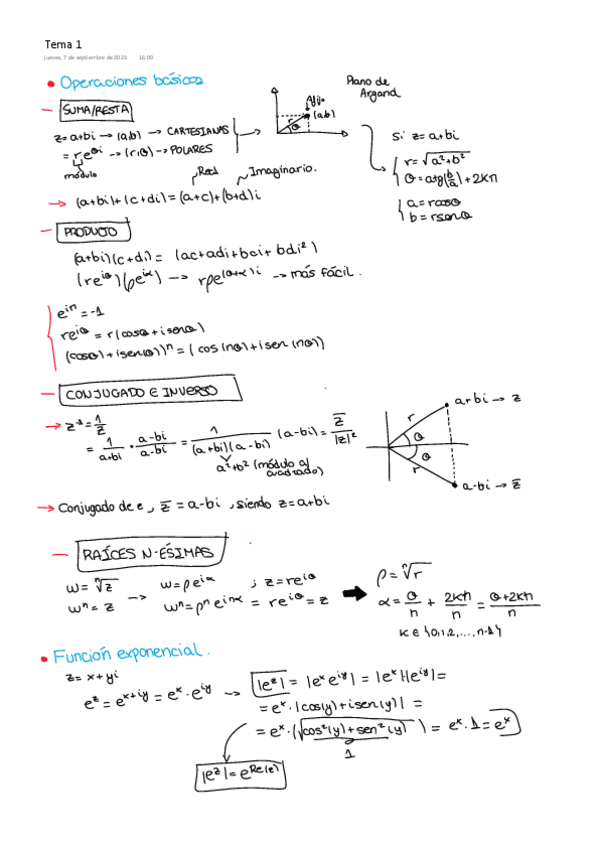 Tema 1
jueves, 7 de septiembre de 2023 16:09
• Operaciones básicas
— SUMA/RESTA
z=a+bi → (a,b) → CARTESIANAS
= re^θi → (r,θ) → POLARES
módulo
Plano de
Argand
Afijo
(a,b)
r
θ
Si z=a+bi
r=√a²+b²
θ=artg(b/a)+2kπ
a=rcosθ
b=rsenθ
Real Imaginario.
→ (a+bi)+(c+di)=(a+c)+(b+d)i
— PRODUCTO
(a+bi)(c+di)= (ac+adi+bci+bdi²)
(re^iθ)(ρe^iα) → rρe^(θ+α)i → más fácil.
e^iπ=-1
re^iθ = r(cosθ+isenθ)
(cosθ)+isen(θ))^n=(cos(nθ)+isen(nθ))
— CONJUGADO E INVERSO
→ z^-1=1/z
= 1/(a+bi) · (a-bi)/(a-bi) = 1/((a+bi)(a-bi)) (a-bi)= z̅/|z|²
a²+b² (módulo al
cuadrado)
r
a+bi → z
θ
θ
r
a-bi → z̅
→ Conjugado de e, z̅=a-bi, siendo z=a+bi
— RAÍCES N-ÉSIMAS
w= ⁿ√z → w=ρe^iα ; z=re^iθ
w^n=z w^n=ρ^n e^inα = re^iθ=z
ρ=ⁿ√r
α= θ/n + 2kπ/n = (θ+2kπ)/n
k∈{0,1,2,...,n-1}
• Función exponencial.
z=x+yi
e^z=e^x+iy=e^x·e^iy → |e^z|= |e^x e^iy| = |e^x||e^iy|=
= e^x·|cos(y)+isen(y)| =
= e^x·(√cos²(y)+sen²(y)) = e^x·1=e^x
1
|e^z|=e^Re(z)